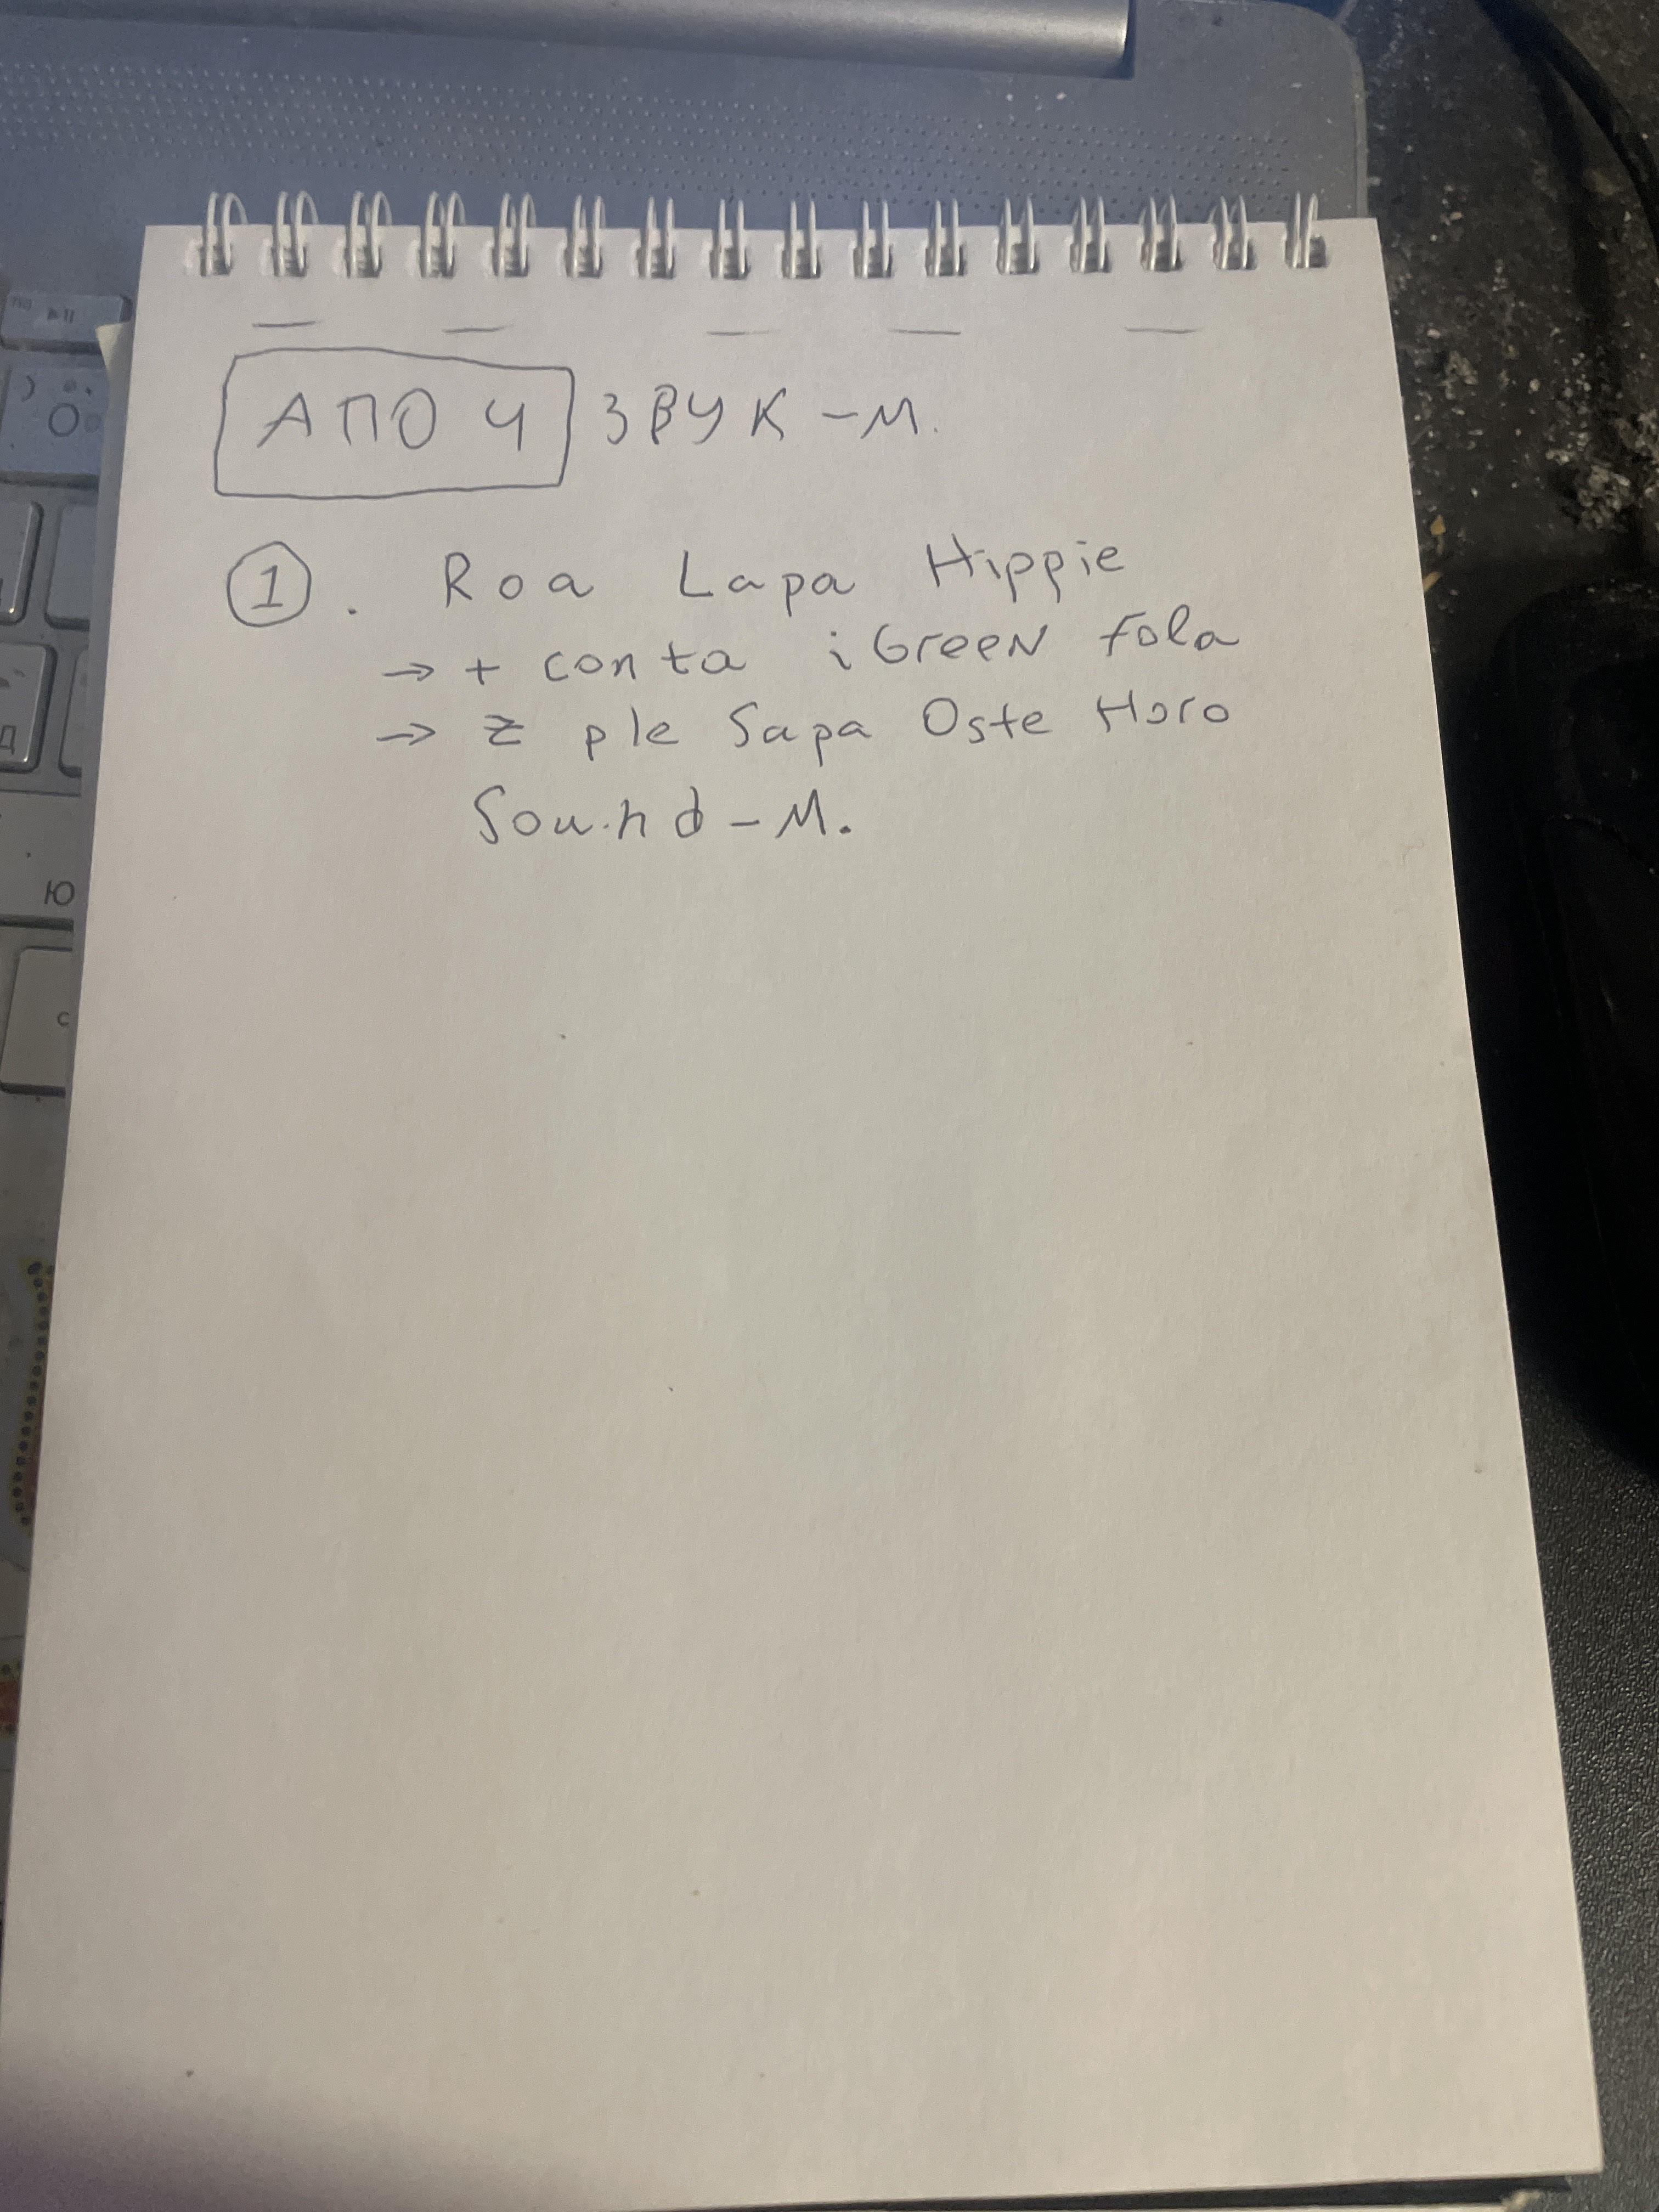 АПО Ч ЗВУК-М.
1. Roa Lapa Hippie
→ + conta iGreeN fola
→ Z ple Sapa Oste Horo
Sound-M.
О
Д
Ю
С